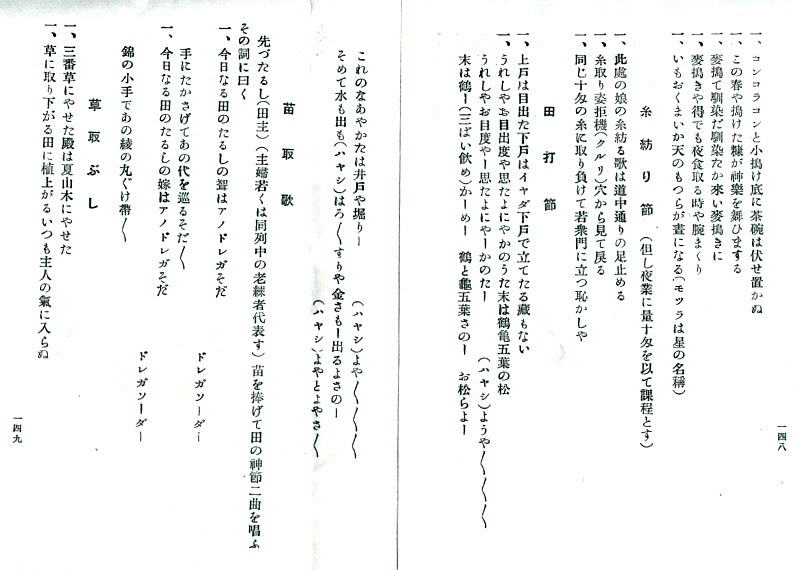 一、コンコラコンと小搗け底に茶碗は伏せ置かぬ
一、この春や搗けた糠が神樂を舞ひまする
一、麥搗て馴染だ馴染なか來い麥搗きに
一、麥搗きや得でも夜食取る時や腕まくり
一、いもおくまいか天のもつらが晝になる(モツラは星の名稱)
糸紡り節(但し夜業に量十匁を以て課程とす)
一、此處の娘の糸紡る歌は道中通りの足止める
一、糸取り姿拒機(クルリ)穴から見て戻る
一、同じ十匁の糸に取り負けて若衆門に立つ恥かしや
田打節
一、上戸は目出た下戸はイヤダ下戸で立てたる藏もない
一、うれしやお目出度や思たよにやかのうた末は鶴亀五葉の松
うれしやお目度やー思たよにやーかのたー(ハヤシ)ようや〳〵〳〵〳〵
末は鶴ー(三ばい飮め)かーめー 鶴と龜五葉さのー お松らよー
一四八
これのなあやかたは井戸や堀りー(ハヤシ)よや〳〵〳〵〳〵
そめて水も出も(ハヤシ)はろ〳〵すりや金さもー出るよさのー
(ハヤシ)よやとよやさ〳〵
苗取歌
先づたるし(田主)(主婦若くは同列中の老練者代表す)苗を捧げて田の神節二曲を唱ふ
その詞に曰く
一、今日なる田のたるしの聟はアノドレガそだ
ドレガソーダー
手にたかさげてあの代を巡るそだ〳〵
一、今日なる田のたるしの嫁はアノドレガそだ
ドレガソーダー
錦の小手であの綾の丸ぐけ帶〳〵
草取ぶし
一、三番草にやせた殿は夏山木にやせた
一、草に取り下がる田に植上がるいつも主人の氣に入らぬ
一四九